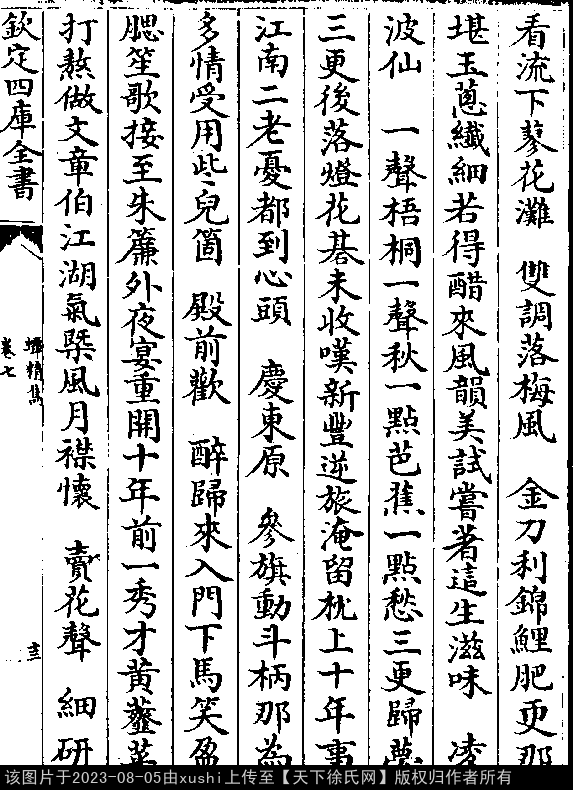 看流下蓼花灘　雙調落梅風　金刀利錦鯉肥更那
堪玉蔥纖細若得醋來風韻美試嘗著這生滋味　凌
波仙　一聲梧桐一聲秋一點芭蕉一點愁三更歸夢
三更後落燈花碁未收嘆新豐逆旅淹留枕上十年事
江南二老憂都到心頭　慶東原　參旗動斗柄那為
多情受用些兒箇　殿前歡　醉歸來入門下馬笑盈
腮笙歌接至朱簾外夜宴重開十年前一秀才黃虀菜
打熬做文章伯江湖氣槩風月襟懷　賣花聲　細研
欽定四庫全書
卷七
該图片于2023-08-05由xushi上传至【天下徐氏网】版权归作者所有